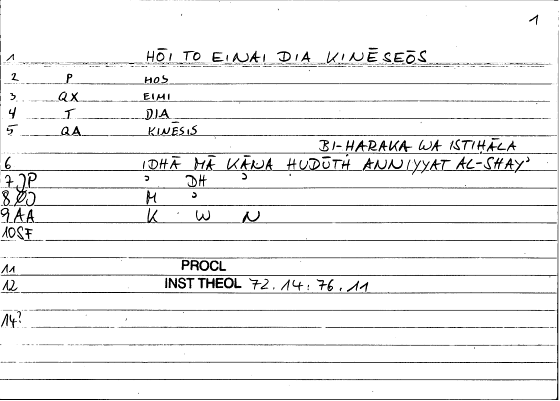 1
1 HŌI TO EINAI DIA KINĒSEŌS
2 P HOS
3 QX EIMI
4 T DIA
5 QA KINĒSIS
BI-HARAKA WA ISTIHĀLA
6 IDHĀ MĀ KĀNA HUDŪTH ANNIYYAT AL-SHAY'
7 JP ' DH '
8 M '
9 AA K W N
10 SF
11 PROCL
12 INST THEOL 72.14:76.11
14?